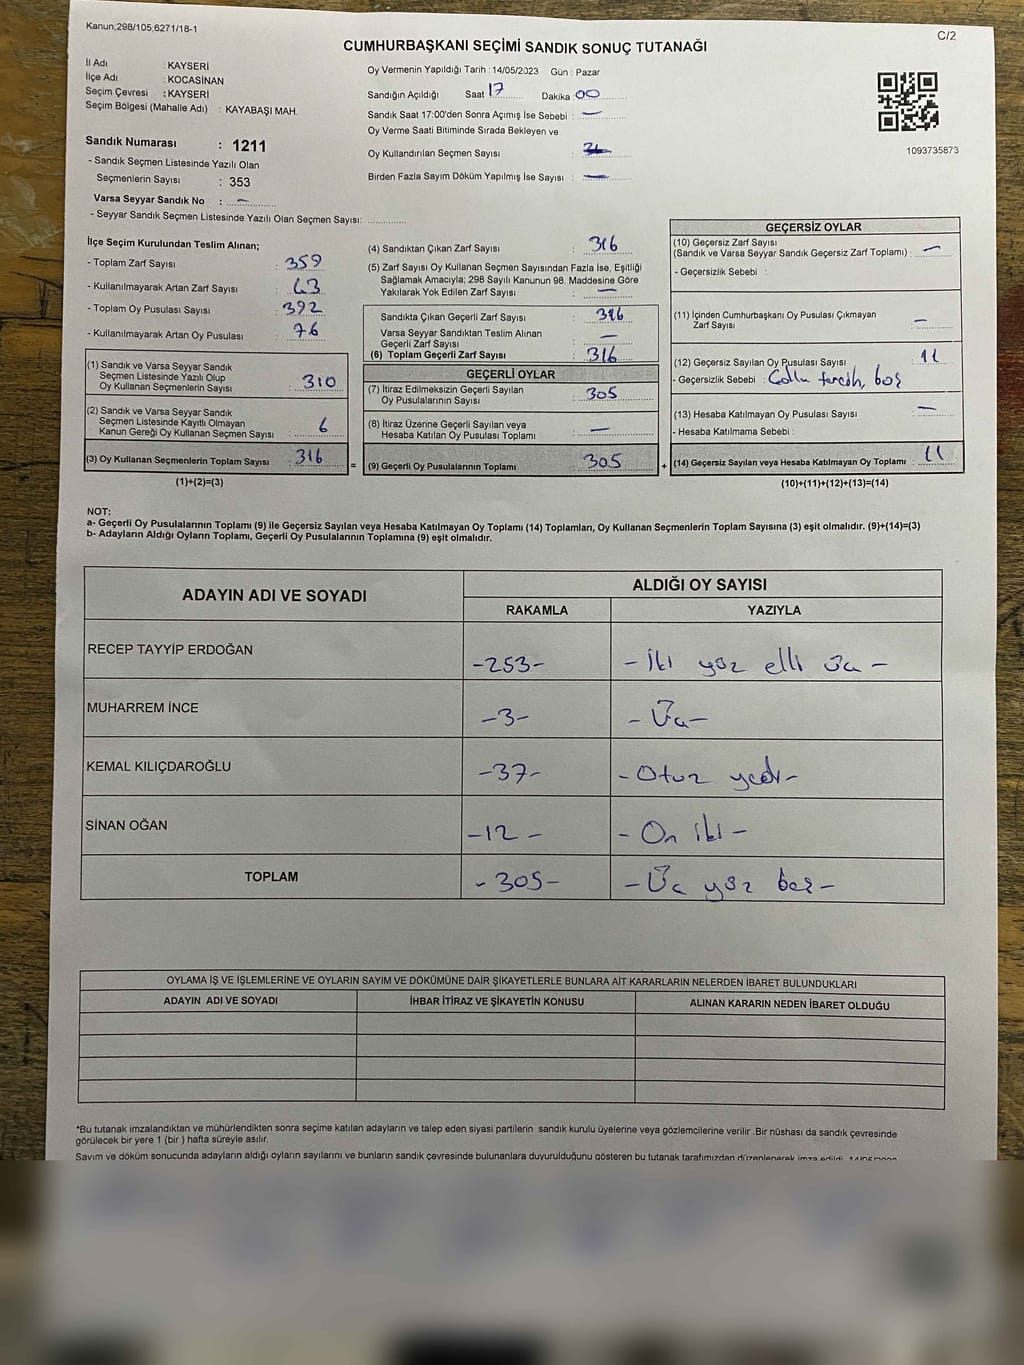 Kanun;298/105,6271/18-1
C/2
CUMHURBAŞKANI SEÇİMİ SANDIK SONUÇ TUTANAĞI
İl Adı : KAYSERİ
İlçe Adı : KOCASİNAN
Seçim Çevresi : KAYSERİ
Seçim Bölgesi (Mahalle Adı) : KAYABAŞI MAH.
Oy Vermenin Yapıldığı Tarih : 14/05/2023 Gün : Pazar
Sandığın Açıldığı Saat 17 Dakika : 00
Sandık Saat 17:00'den Sonra Açımış İse Sebebi : —
Oy Verme Saati Bitiminde Sırada Bekleyen ve
Oy Kullandırılan Seçmen Sayısı :
Birden Fazla Sayım Döküm Yapılmış İse Sayısı : —
1093735873
Sandık Numarası : 1211
- Sandık Seçmen Listesinde Yazılı Olan
Seçmenlerin Sayısı : 353
Varsa Seyyar Sandık No : —
- Seyyar Sandık Seçmen Listesinde Yazılı Olan Seçmen Sayısı:
İlçe Seçim Kurulundan Teslim Alınan;
- Toplam Zarf Sayısı : 359
- Kullanılmayarak Artan Zarf Sayısı : 43
- Toplam Oy Pusulası Sayısı : 392
- Kullanılmayarak Artan Oy Pusulası : 76
(1) Sandık ve Varsa Seyyar Sandık
Seçmen Listesinde Yazılı Olup
Oy Kullanan Seçmenlerin Sayısı : 310
(2) Sandık ve Varsa Seyyar Sandık
Seçmen Listesinde Kayıtlı Olmayan
Kanun Gereği Oy Kullanan Seçmen Sayısı : 6
(3) Oy Kullanan Seçmenlerin Toplam Sayısı : 316
(1)+(2)=(3)
(4) Sandıktan Çıkan Zarf Sayısı : 316
(5) Zarf Sayısı Oy Kullanan Seçmen Sayısından Fazla İse, Eşitliği
Sağlamak Amacıyla; 298 Sayılı Kanunun 98. Maddesine Göre
Yakılarak Yok Edilen Zarf Sayısı : —
Sandıkta Çıkan Geçerli Zarf Sayısı : 316
Varsa Seyyar Sandıktan Teslim Alınan
Geçerli Zarf Sayısı : —
(6) Toplam Geçerli Zarf Sayısı : 316
GEÇERLİ OYLAR
(7) İtiraz Edilmeksizin Geçerli Sayılan
Oy Pusulalarının Sayısı : 305
(8) İtiraz Üzerine Geçerli Sayılan veya
Hesaba Katılan Oy Pusulası Toplamı : —
= (9) Geçerli Oy Pusulalarının Toplamı : 305 +
GEÇERSİZ OYLAR
(10) Geçersiz Zarf Sayısı
(Sandık ve Varsa Seyyar Sandık Geçersiz Zarf Toplamı) : —
- Geçersizlik Sebebi :
(11) İçinden Cumhurbaşkanı Oy Pusulası Çıkmayan
Zarf Sayısı : —
(12) Geçersiz Sayılan Oy Pusulası Sayısı : 11
- Geçersizlik Sebebi : Çoklu tercih, boş
(13) Hesaba Katılmayan Oy Pusulası Sayısı : —
- Hesaba Katılmama Sebebi :
(14) Geçersiz Sayılan veya Hesaba Katılmayan Oy Toplamı : 11
(10)+(11)+(12)+(13)=(14)
NOT:
a- Geçerli Oy Pusulalarının Toplamı (9) ile Geçersiz Sayılan veya Hesaba Katılmayan Oy Toplamı (14) Toplamları, Oy Kullanan Seçmenlerin Toplam Sayısına (3) eşit olmalıdır. (9)+(14)=(3)
b- Adayların Aldığı Oyların Toplamı, Geçerli Oy Pusulalarının Toplamına (9) eşit olmalıdır.
ADAYIN ADI VE SOYADI ALDIĞI OY SAYISI
RAKAMLA YAZIYLA
RECEP TAYYİP ERDOĞAN -253- - İki yüz elli üç -
MUHARREM İNCE -3- - Üç -
KEMAL KILIÇDAROĞLU -37- - Otuz yedi -
SİNAN OĞAN -12- - On iki -
TOPLAM -305- - Üç yüz beş -
OYLAMA İŞ VE İŞLEMLERİNE VE OYLARIN SAYIM VE DÖKÜMÜNE DAİR ŞİKAYETLERLE BUNLARA AİT KARARLARIN NELERDEN İBARET BULUNDUKLARI
ADAYIN ADI VE SOYADI İHBAR İTİRAZ VE ŞİKAYETİN KONUSU ALINAN KARARIN NEDEN İBARET OLDUĞU
*Bu tutanak imzalandıktan ve mühürlendikten sonra seçime katılan adayların ve talep eden siyasi partilerin sandık kurulu üyelerine veya gözlemcilerine verilir .Bir nüshası da sandık çevresinde
görülecek bir yere 1 (bir ) hafta süreyle asılır.
Sayım ve döküm sonucunda adayların aldığı oyların sayılarını ve bunların sandık çevresinde bulunanlara duyurulduğunu gösteren bu tutanak tarafımızdan düzenlenerek imza edildi.